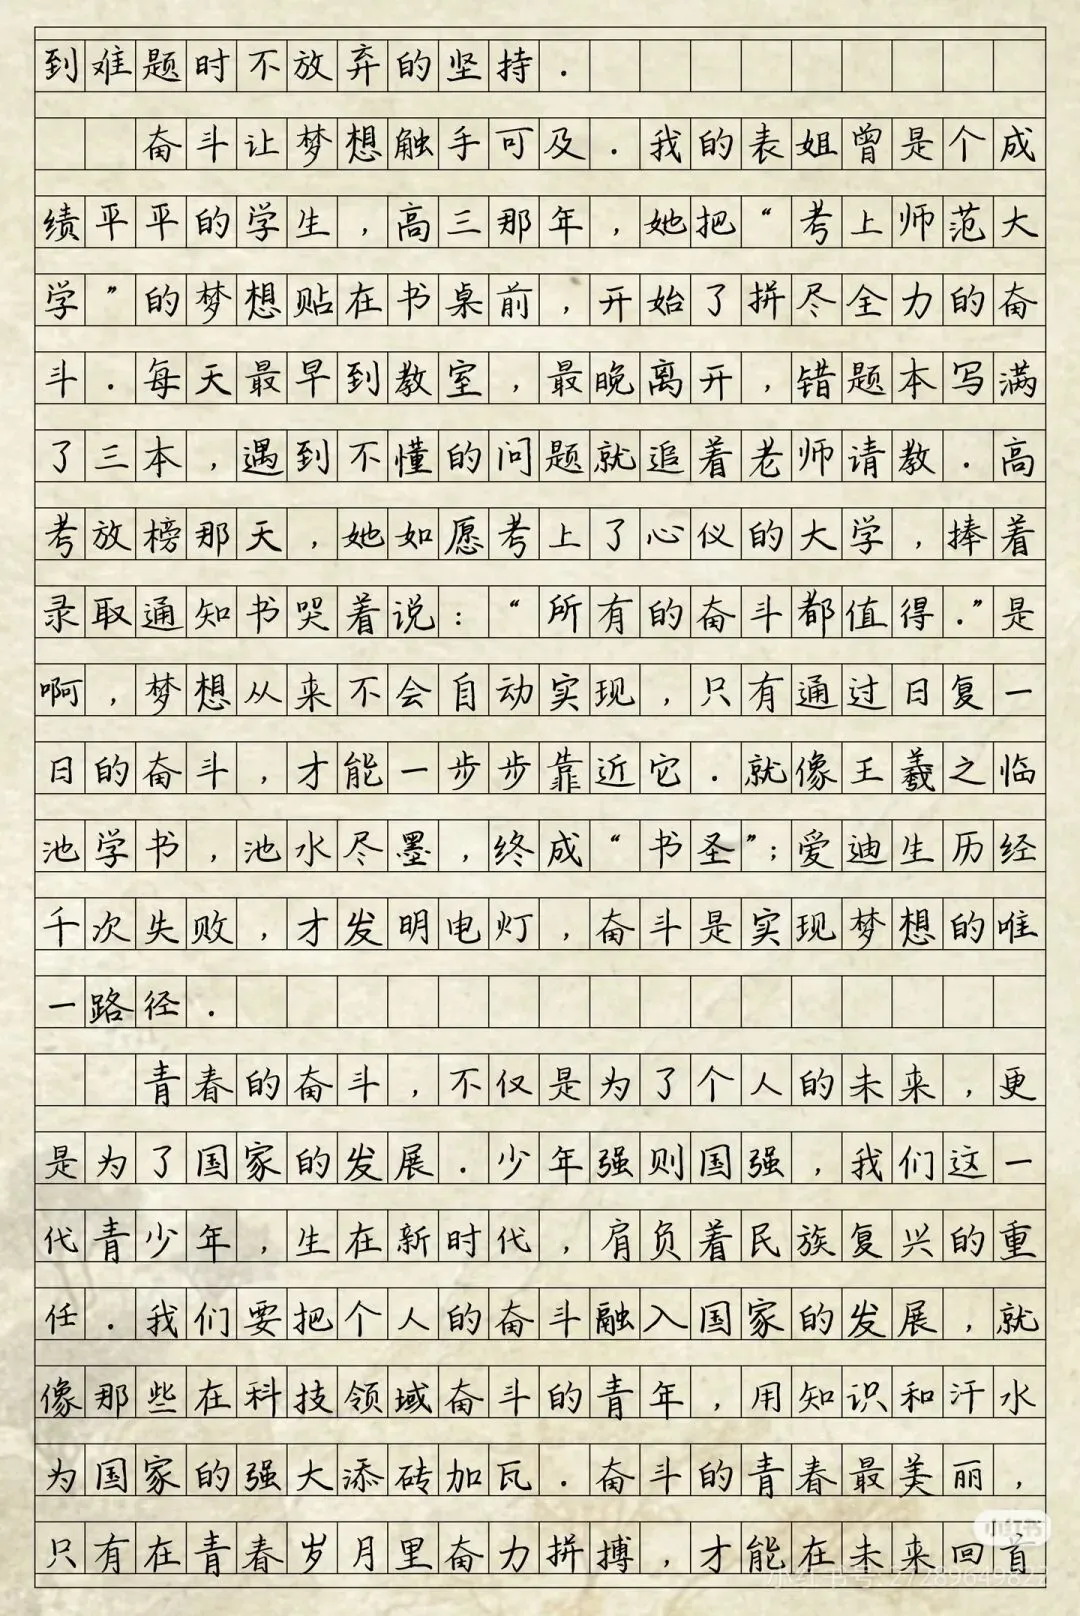 到难题时不放弃的坚持.
奋斗让梦想触手可及.我的表姐曾是个成
绩平平的学生,高三那年,她把“考上师范大
学”的梦想贴在书桌前,开始了拼尽全力的奋
斗.每天最早到教室,最晚离开,错题本写满
了三本,遇到不懂的问题就追着老师请教.高
考放榜那天,她如愿考上了心仪的大学,捧着
录取通知书哭着说:“所有的奋斗都值得.”是
啊,梦想从来不会自动实现,只有通过日复一
日的奋斗,才能一步步靠近它.就像王羲之临
池学书,池水尽墨,终成“书圣”;爱迪生历经
千次失败,才发明电灯,奋斗是实现梦想的唯
一路径.
青春的奋斗,不仅是为了个人的未来,更
是为了国家的发展.少年强则国强,我们这一
代青少年,生在新时代,肩负着民族复兴的重
任.我们要把个人的奋斗融入国家的发展,就
像那些在科技领域奋斗的青年,用知识和汗水
为国家的强大添砖加瓦.奋斗的青春最美丽,
只有在青春岁月里奋力拼搏,才能在未来回首
小红书